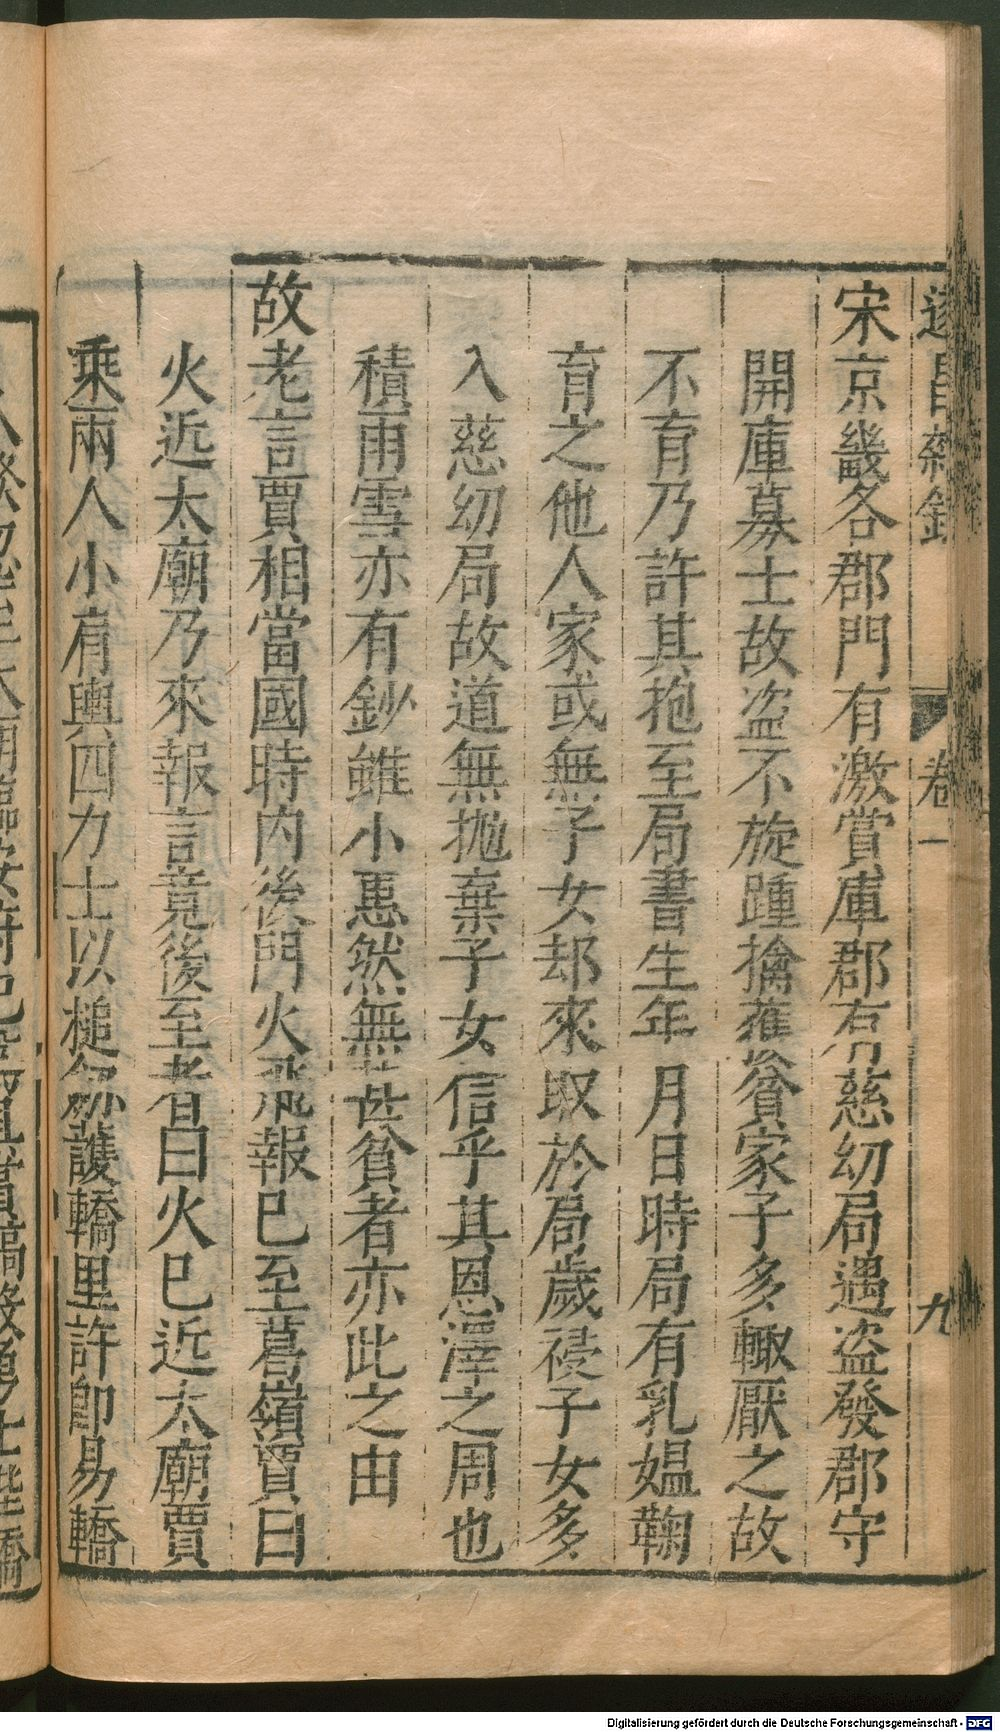 遂昌雜錄 卷一 九
宋京畿各郡門有激賞庫郡有慈幼局遇盜發郡守
開庫募士故盜不旋踵擒獲貧家子多輒厭之故
不育乃許其抱至局書生年月日時局有乳媼鞠
育之他人家或無子女却來取於局歲祲子女多
入慈幼局故道無拋棄子女信乎其恩澤之周也
積雨雪亦有鈔雖小惠然無甚貧者亦此之由
故老言賈相當國時内後門火飛報已至葛嶺賈曰
火近太廟乃來報言竟後至者曰火已近太廟賈
乘兩人小肩輿四力士以槌劒護轎里許即易轎
Digitalisierung gefördert durch die Deutsche Forschungsgemeinschaft - DFG